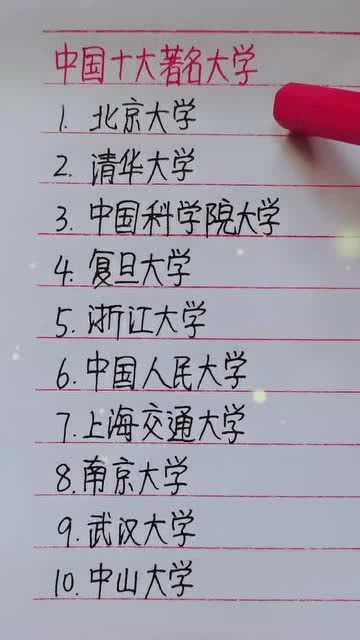 中国十大著名大学
1. 北京大学
2. 清华大学
3. 中国科学院大学
4. 复旦大学
5. 浙江大学
6. 中国人民大学
7. 上海交通大学
8. 南京大学
9. 武汉大学
10. 中山大学